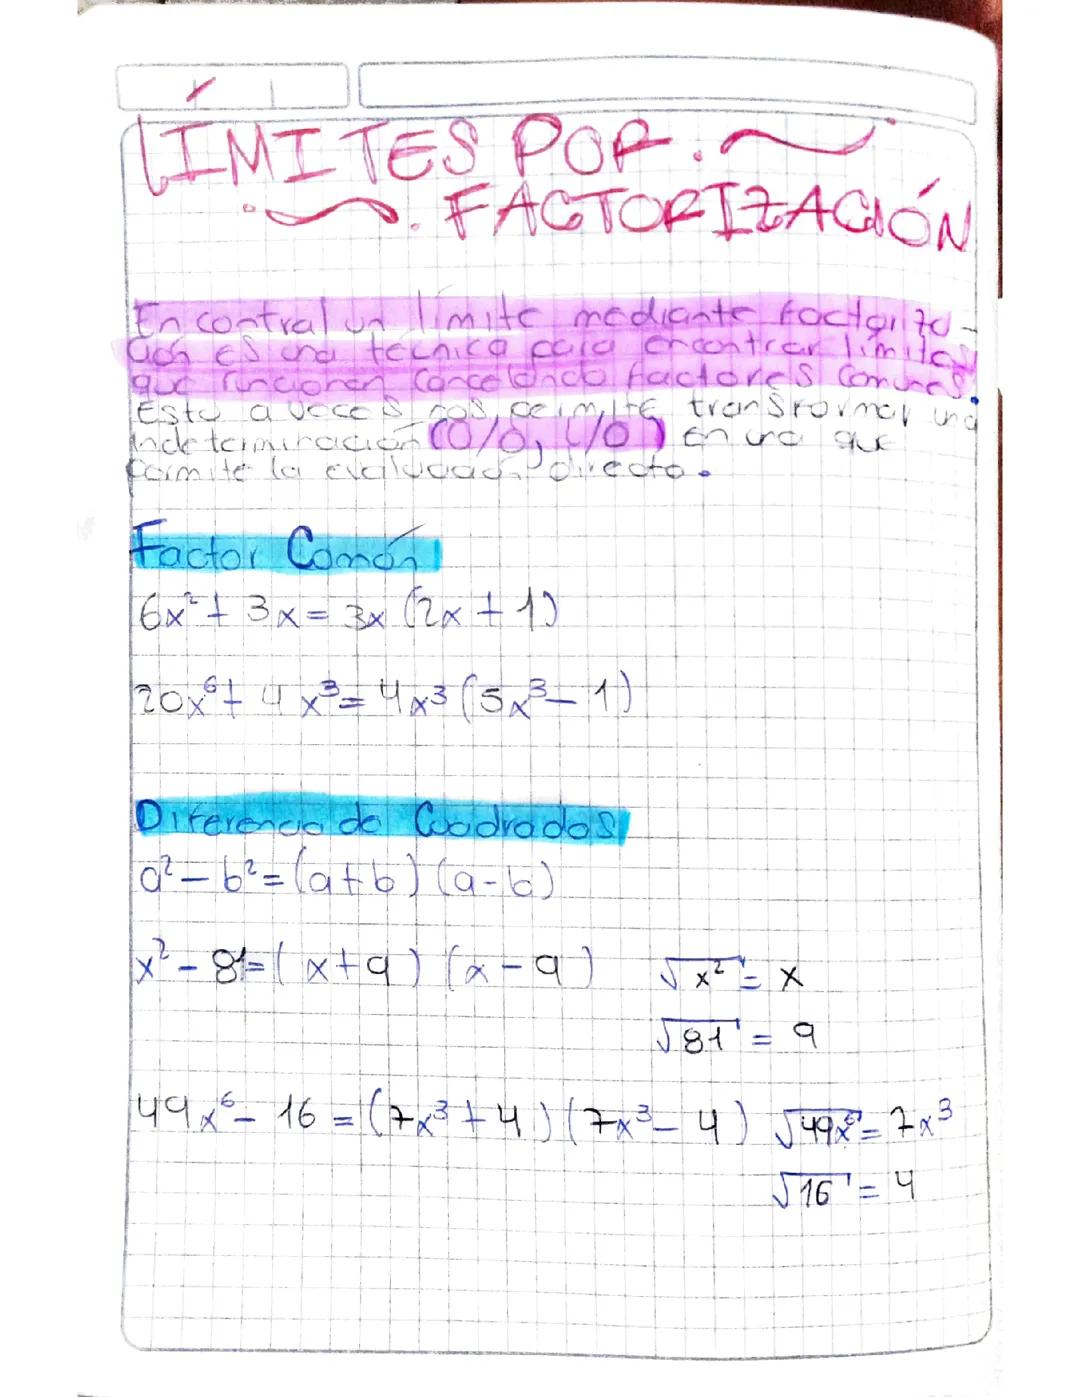 LÍMITES POR
FACTORIZACIÓN
Encontral un límite mediante factoriza-
ción es una tecnica para encontrar límites
que funcionan cancelando factores comunes.
Esto a veces nos permite transformar una
indeterminación (0/0, /0) en una que
permite la evaluación directa.
Factor Común
6x² + 3x = 3x (2x + 1)
20x⁶ + 4x³ = 4x³ (5x³ - 1)
Diferencia de Cuadrados
a² - b² = (a+b) (a-b)
x² - 81 = (x+9) (x-9) √x² = x
√81 = 9
49x⁶ - 16 = (7x³ + 4) (7x³ - 4) √49x⁶ = 7x³
√16 = 4